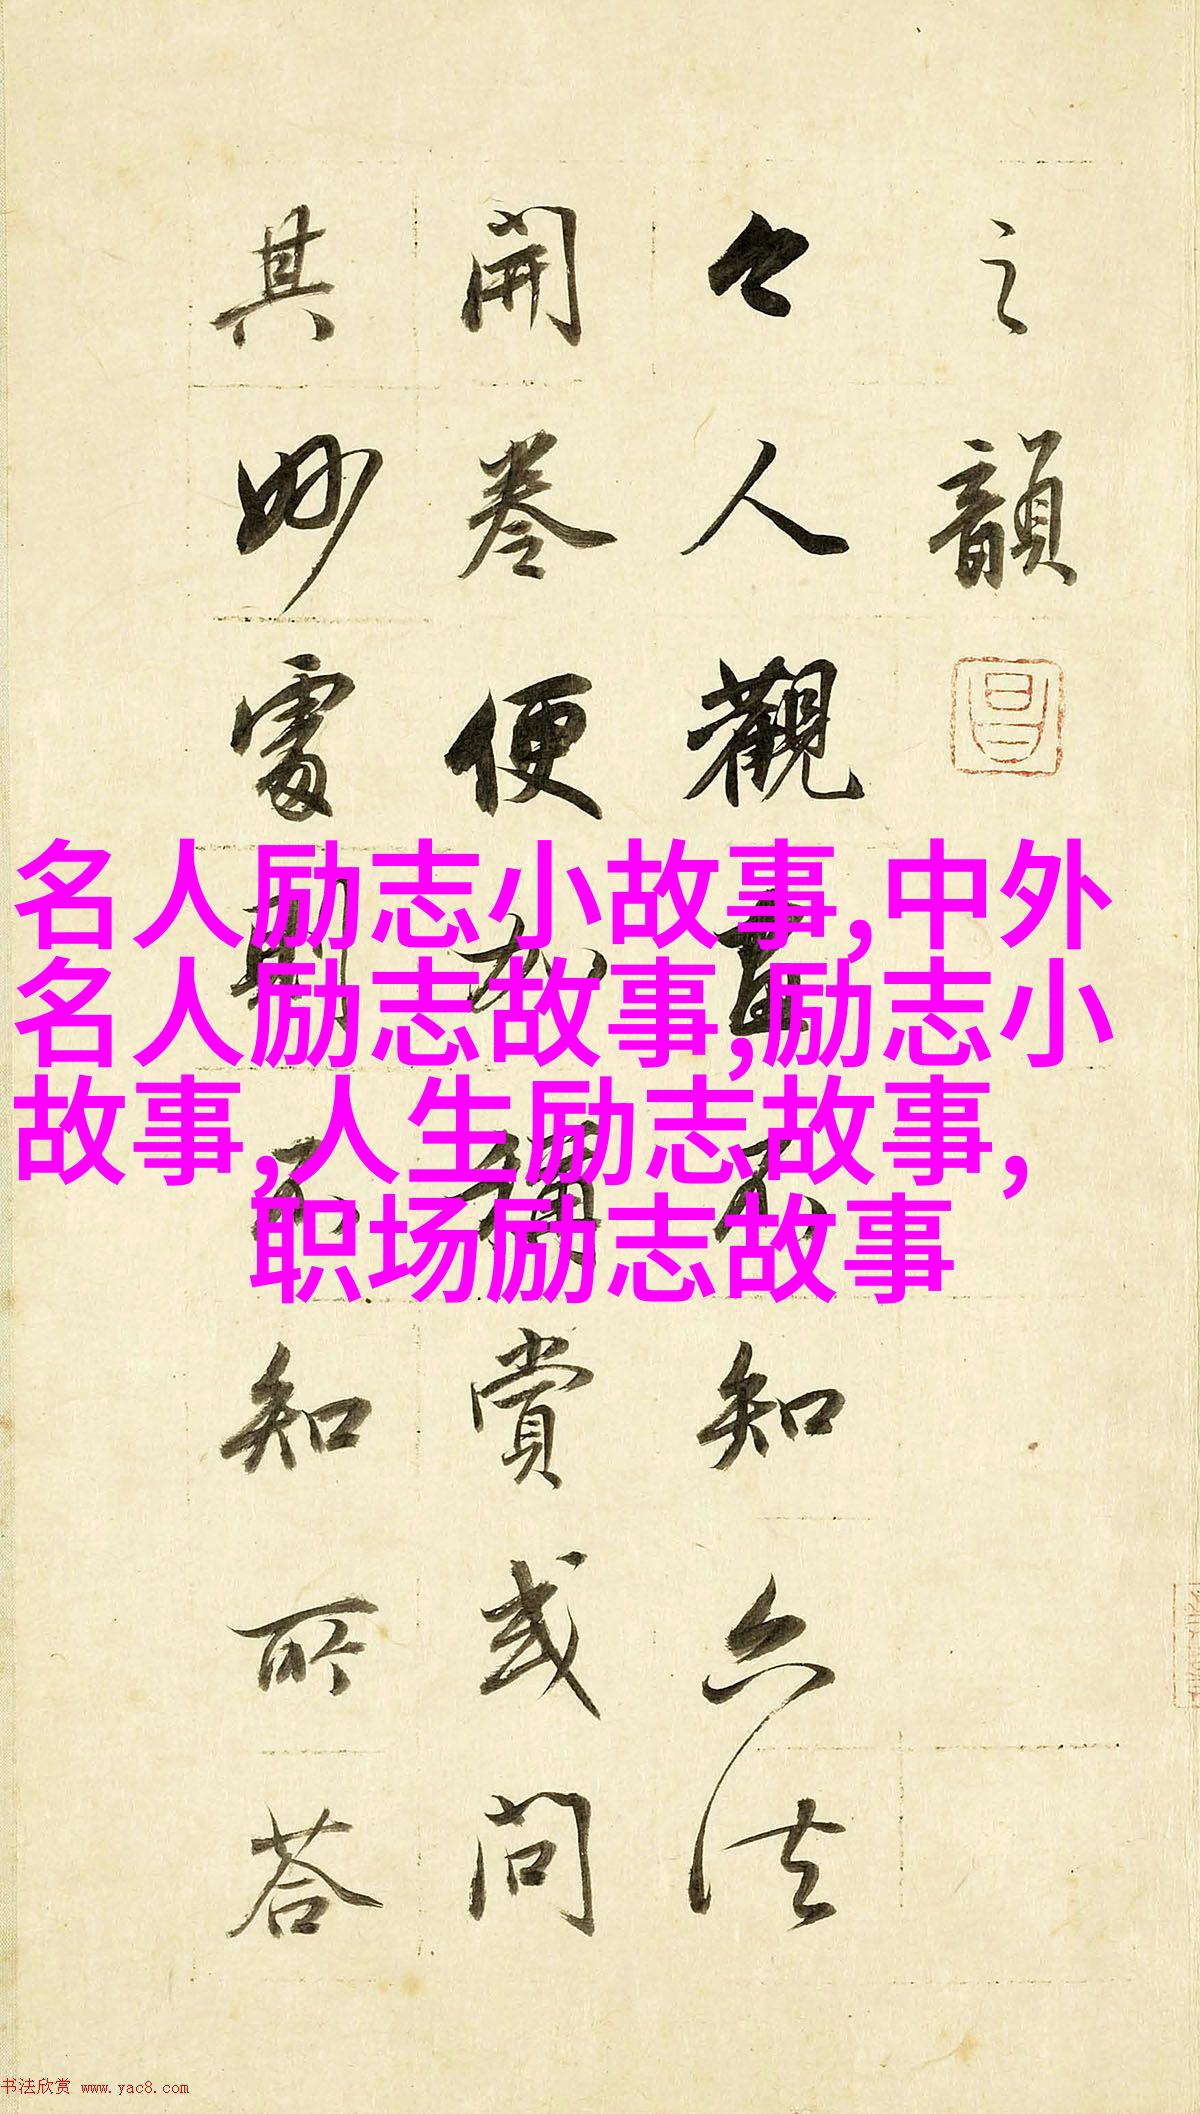 之韻
昌
今人觀畫不知六法
開卷便加稱賞或問
其妙處則不知所荅
名人励志小故事,中外
名人励志故事,励志小
故事,人生励志故事,
职场励志故事
书法欣赏 www.yac8.com